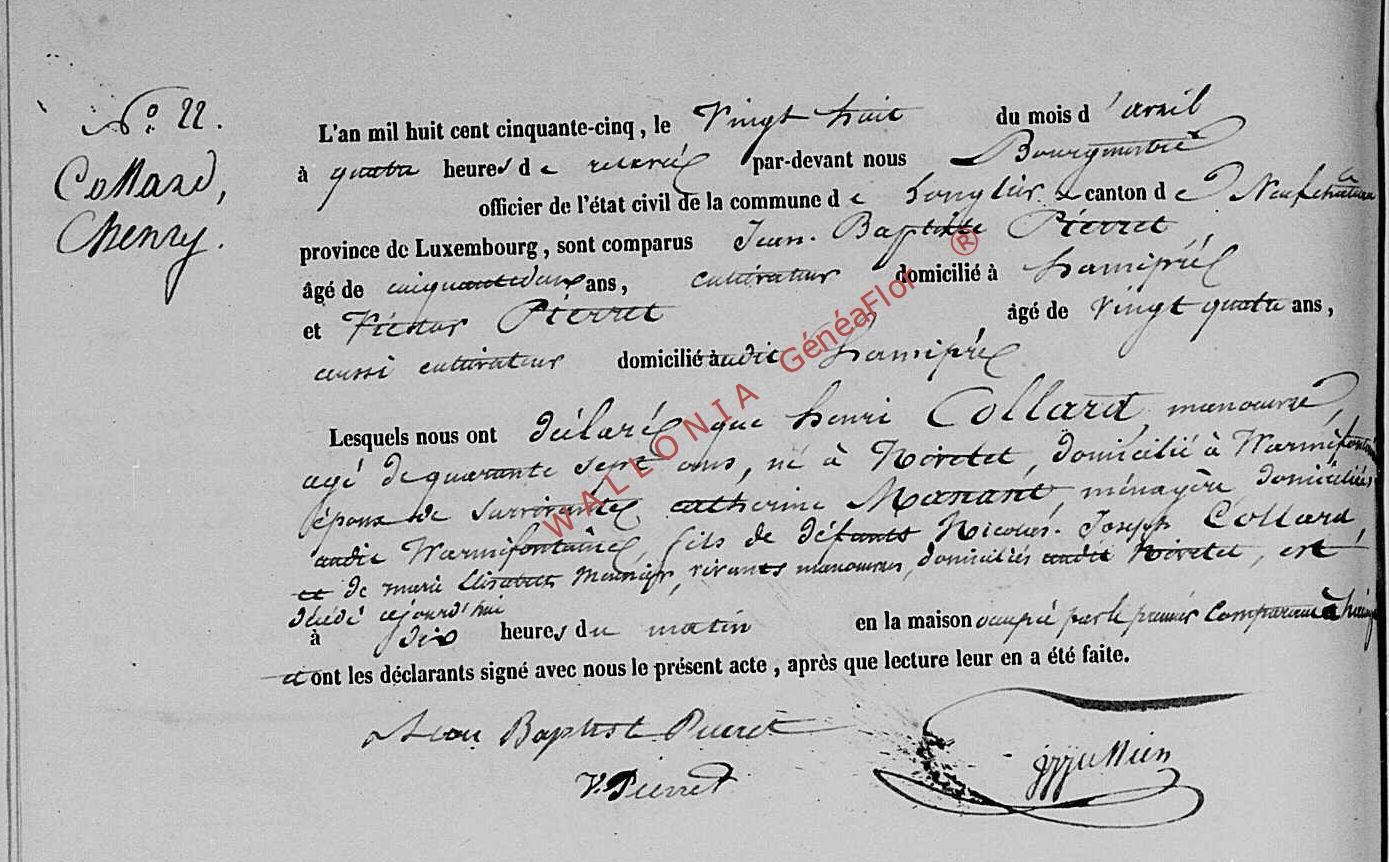 N.º 22.
Collard,
Henry.
L'an mil huit cent cinquante-cinq, le Vingt huit du mois d'avril
à quatre heures de relevée par-devant nous Bourgmestre
officier de l'état civil de la commune de Longlier canton de Neufchateau
province de Luxembourg, sont comparus Jean-Baptiste Pierret,
âgé de cinquante deux ans, cultivateur domicilié à hamipré
et Victor Pierret âgé de vingt quatre ans,
aussi cultivateur domicilié audit hamipré
Lesquels nous ont déclaré que henri Collard, manouvre,
agé de quarante sept ans, né à Nivelet, domicilié à Warmifontaine
époux de survivante catherine Manant ménagère domiciliée
audit Warmifontaine, fils de défunts Nicolas-Joseph Collard,
et de marie Elisabeth Meunier, vivants manouvres, domiciliés audit Nivelet, est
décédé cejourd'hui
à dix heures du matin en la maison occupée par le premier comparant à
et ont les déclarants signé avec nous le présent acte, après que lecture leur en a été faite.
Jean Baptiste Pierret
V. Pierret
WALLONIA GénéaFlor ®